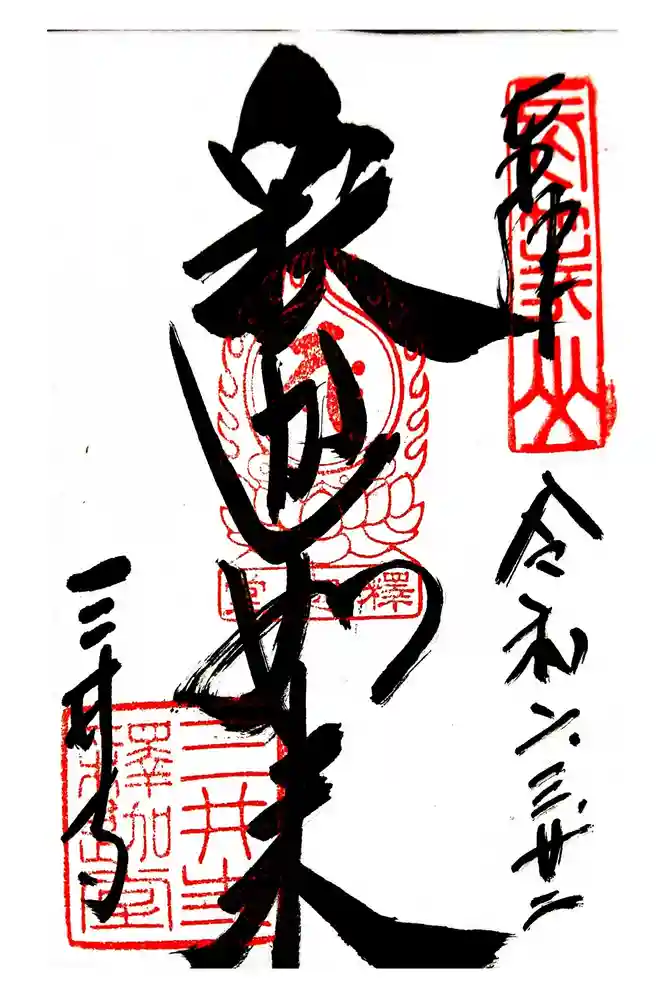 奉拝
令和六.三.廿二
釈迦如来
釋迦堂
三井寺
三井寺
釋迦堂